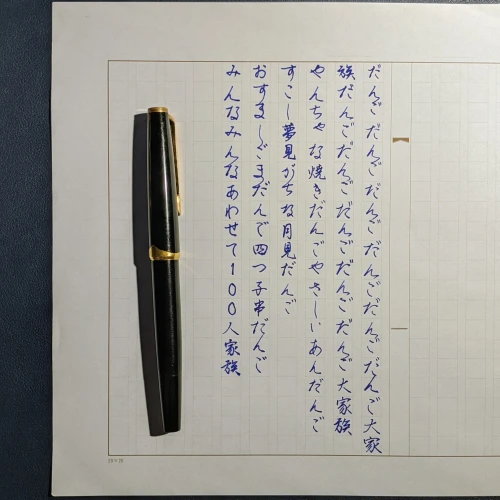 だんごだんごだんごだんごだんごだんご大家
族だんごだんごだんごだんごだんご大家族
やんちゃな焼きだんごやさしいあんだんご
すこし夢見がちな月見だんご
おすましごまだんご四つ子串だんご
みんなみんなあわせて100人家族
20×20